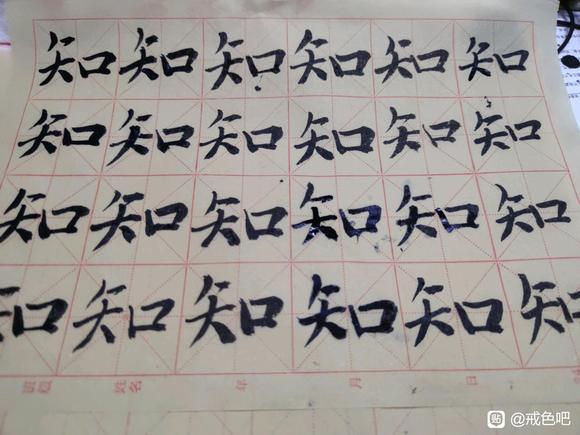 知知知知知知
知知知知知知
知知知知知知
知知知知知知
班级 姓名 年 月 日
贴 @戒色吧